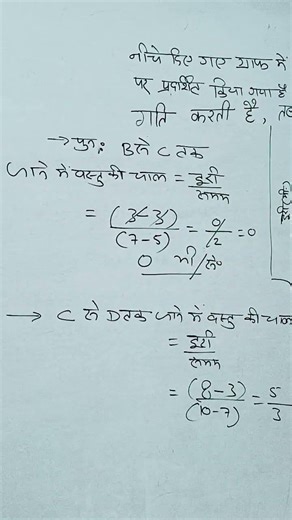 नीचे दिए गए ग्राफ में
पर प्रदर्शित किया गया है
गति करती है,
→ पुनः B से C तक
जाने में वस्तु की चाल = दूरी/समय
= (3-3)/(7-5) = 0/2 = 0
0 मी/से०
→ C से D तक जाने में वस्तु की चाल
= दूरी/समय
= (8-3)/(10-7) = 5/3